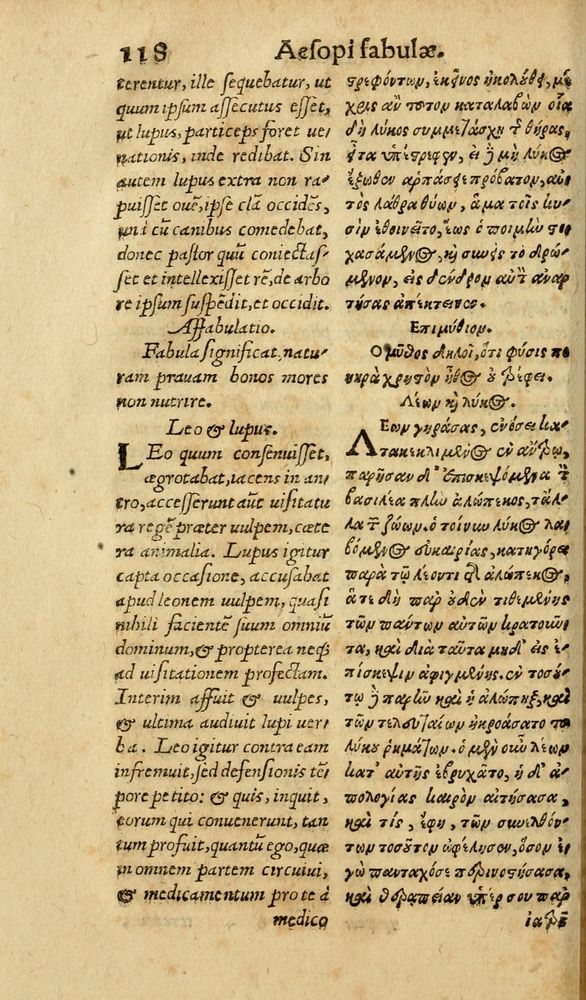 118 Aesopi fabulæ.
terentur, ille sequebatur, ut
quum ipsum assecutus esset,
ut lupus, particeps foret ue
nationis, inde redibat. Sin
autem lupus extra non ra
puisset ouẽ, ipse clã occidẽs,
unà cũ canibus comedebat,
donec pastor quũ coniectas-
set et intellexisset rẽ, de arbo
re ipsum suspẽdit, et occidit.
Affabulatio.
Fabula significat, natu
ram prauam bonos mores
non nutrire.
Leo & lupus.
LEo quum consenuisset,
ægrotabat, iacens in an
tro, accesserunt aũt uisitatu
ra regẽ præter uulpem, cæte
ra animalia. Lupus igitur
capta occasione, accusabat
apud leonem uulpem, quasi
nihili facientẽ suum omniũ
dominum, & propterea neq́;
ad uisitationem profectam.
Interim affuit & uulpes,
& ultima audiuit lupi uer
ba. Leo igitur contra eam
infremuit, sed defensionis tẽ
pore petito: & quis, inquit,
eorum qui conuenerunt, tan
tum profuit, quantũ ego, quæ
in omnem partem circuiui,
& medicamentum pro te à
medico
τρεφόντων, ἐκεῖνος ἠκολούθει, μέ
χρις ἂν τοῦτον καταλαβὼν οἷα
δὴ λύκος συμμετάσχῃ τῆς θήρας,
εἶτα ὑπέστρεφεν, εἰ δὲ μὴ λύκος
ἔξωθεν ἁρπάσειε πρόβατον, αὐ
τὸς λάθρα θύων, ἅμα τοῖς κυ
σὶν ἐθοινεῖτο, ἕως ὁ ποιμὴν στο
χασάμενος, καὶ συνεὶς τὸ δρώ
μενον, εἰς δένδρον αὐτὸν ἀναρ
τήσας ἀπέκτεινεν.
Επιμύθιον.
Ο μῦθος δηλοῖ, ὅτι φύσις πο
νηρὰ χρηστὸν ἦθος οὐ τρέφει.
Λέων καὶ λύκος.
ΛΕων γηράσας, ἐνόσει κα
τακεκλιμένος ἐν ἄντρῳ,
παρῆσαν δ' ἐπισκεψόμενα τὸν
βασιλέα πλὴν ἀλώπεκος, τἆλ
λα τῶν ζώων. ὁ τοίνυν λύκος λα
βόμενος εὐκαιρίας, κατηγόρει
παρὰ τῷ λέοντι τῆς ἀλώπεκος,
ἅτε δὴ παρ' οὐδὲν τιθεμένης
τὸν πάντων αὐτῶν κρατοῦν
τα, καὶ διὰ ταῦτα μηδ' εἰς ἐ
πίσκεψιν ἀφιγμένης. ἐν τοσού
τῳ δὲ παρῆν καὶ ἡ ἀλώπηξ, καὶ
τῶν τελευταίων ἠκροάσατο τοῦ
λύκου ῥημάτων. ὁ μὲν οὖν λέων
κατ' αὐτῆς ἐβρυχᾶτο, ἡ δ' ἀ
πολογίας καιρὸν αἰτήσασα,
καὶ τίς, ἔφη, τῶν συνελθόν
των τοσοῦτον ὠφέλησεν, ὅσον ἐ
γὼ πανταχόσε περινοστήσασα,
καὶ θεραπείαν ὑπὲρ σου παρ'
ἰατροῦ